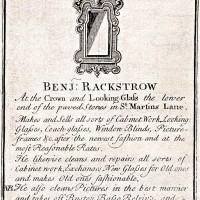 BENJ: RACKSTROW
At the Crown and Looking-Glass the lower
end of the paved Stones in St. Martins Lane,
Makes and Sells all sorts of Cabinet Work, Looking
Glasses, Coach-glasses, Window Blinds, Picture-
frames &c. after the newest fashion and at the
most Reasonable Rates.
He likewise cleans and repairs all sorts of
Cabinet work, Exchanges New Glasses for Old ones
and makes Old ones fashionable,
NB. He also cleans Pictures in the best manner
and takes off Bustos